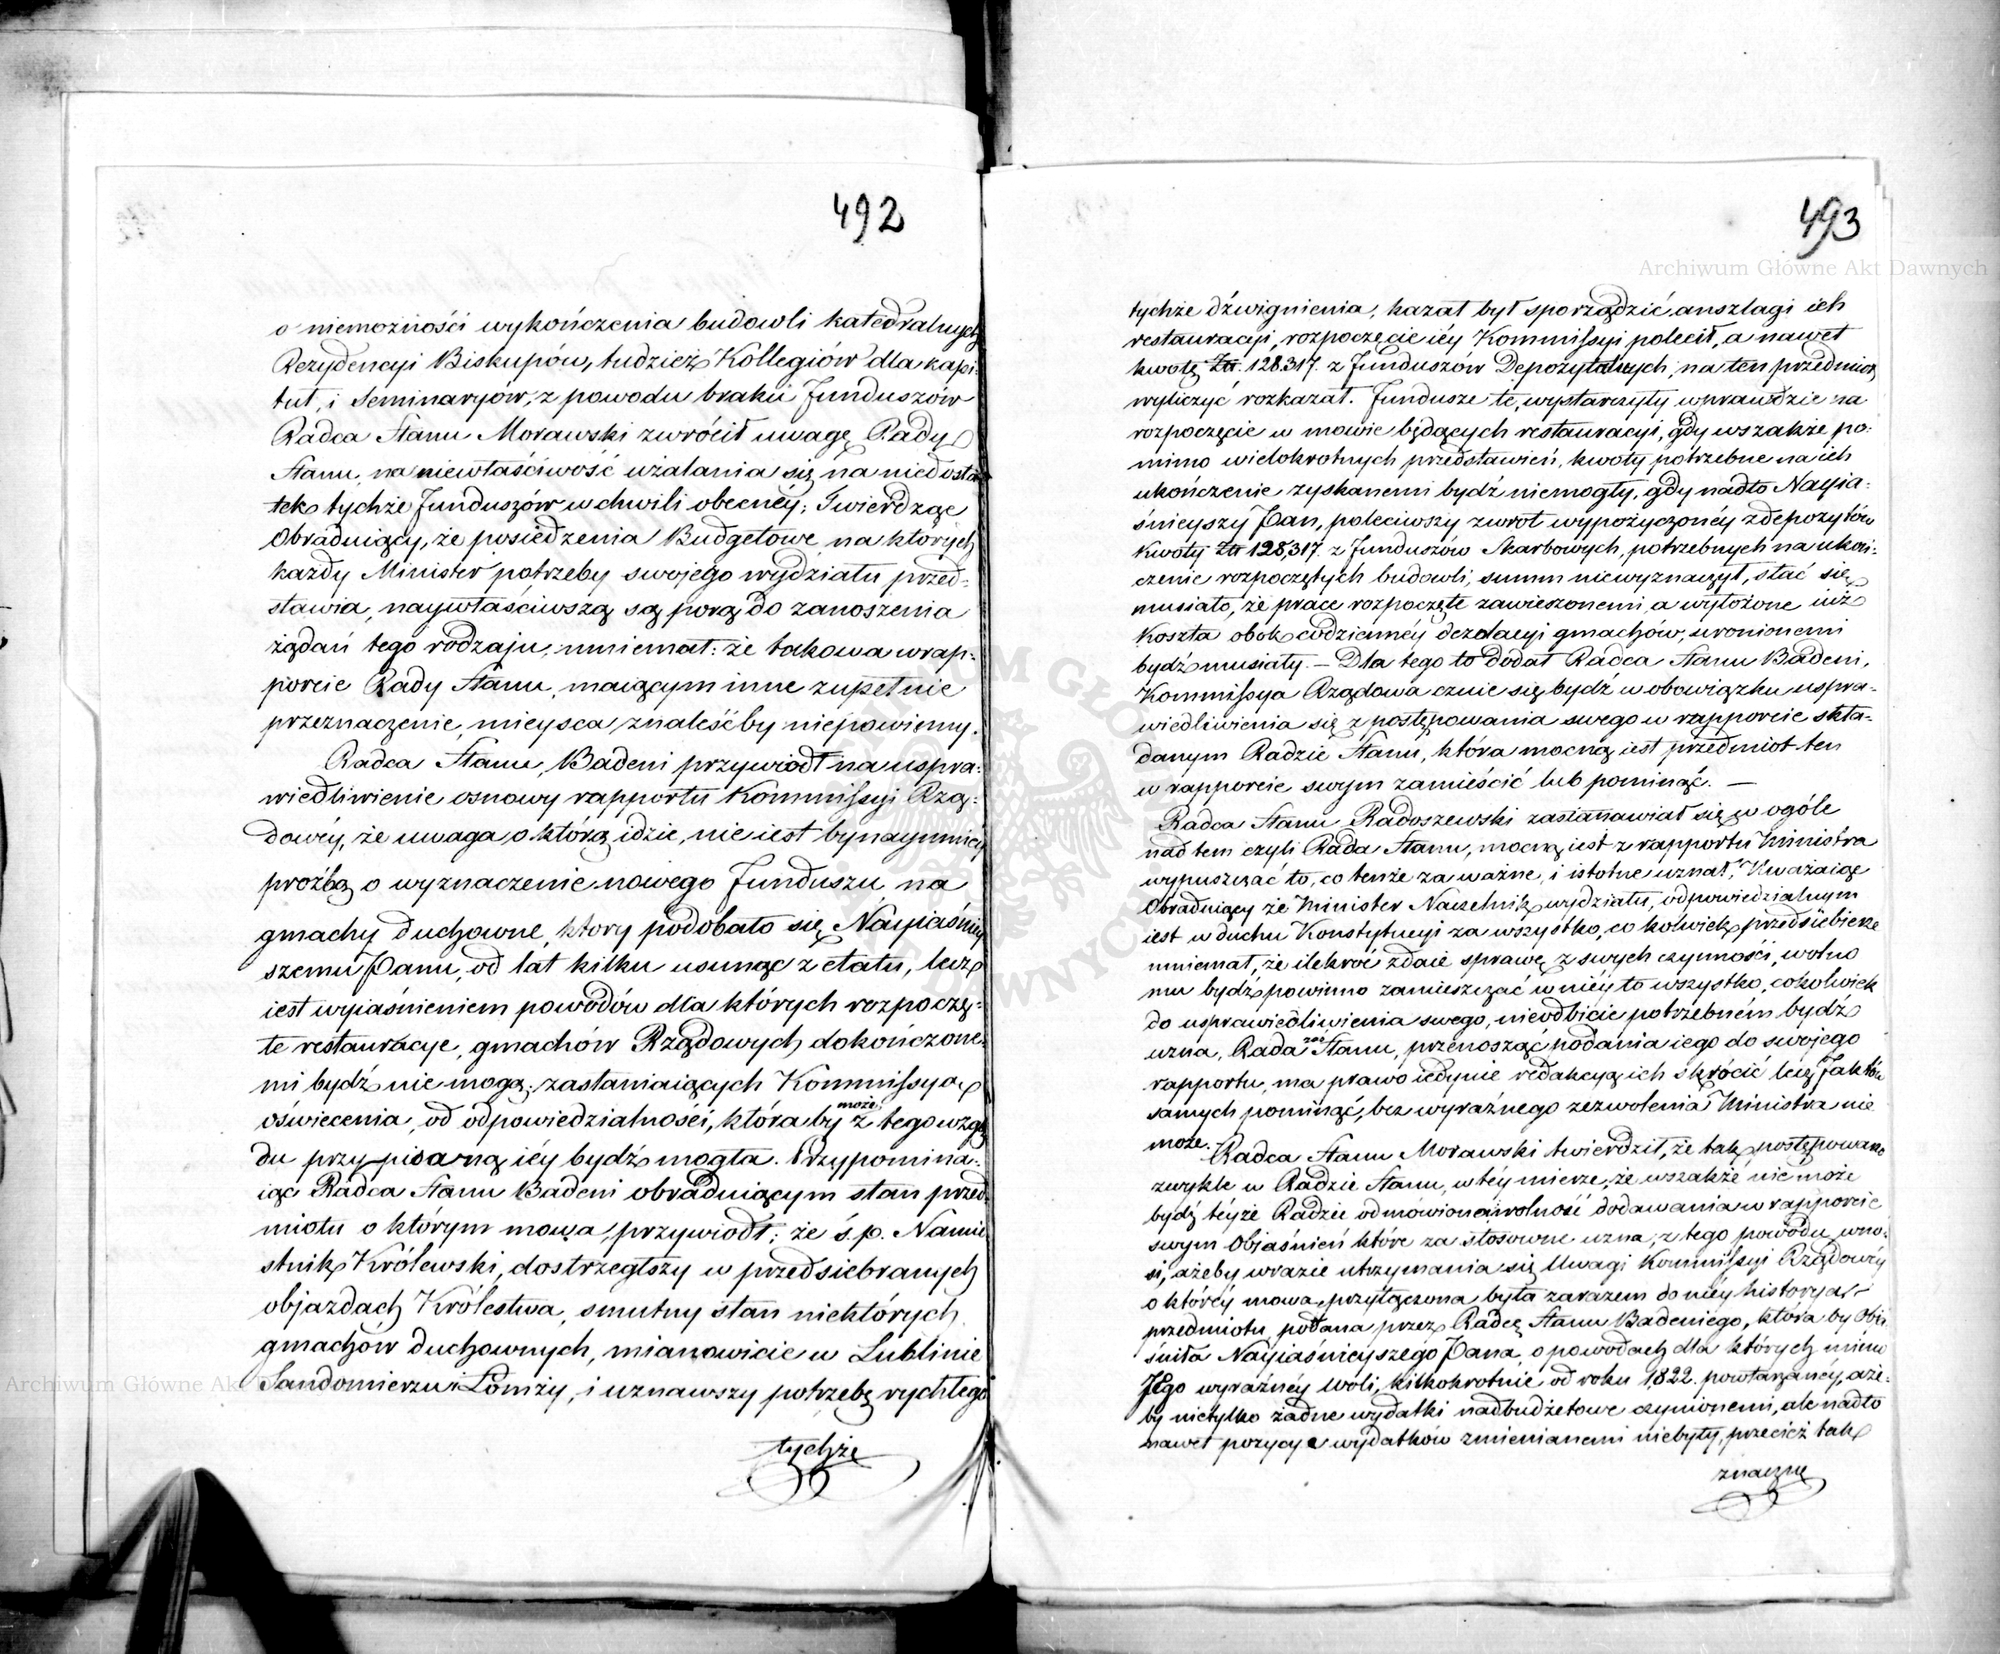 492
o niemożności wykończenia budowli katedralnych
Rezydencyi Biskupów, tudzież Kollegiów dla kapi-
tuł, i Seminaryów, z powodu braku Funduszów
Radca Stanu Morawski zwrócił uwagę Rady
Stanu, na niewłaściwość użalania się na niedosta-
tek tychże Funduszów w chwili obecnéy; Twierdząc
Obradujący, że posiedzenia Budgetowe na których
każdy Minister potrzeby swojego wydziału przed-
stawia, naywłaściwszą są porą do zanoszenia
żądań tego rodzaju, mniemał: że takowa w rap-
porcie Rady Stanu, maiącym inne zupełnie
przeznaczenie, mieysca znaleść by niepowinny.
Radca Stanu Badeni przywiódł na uspra-
wiedliwienie osnowy rapportu Kommissyi Rzą-
dowéy, że uwaga o którą idzie, nie iest bynaymniéy
proźbą o wyznaczenie nowego Funduszu na
gmachy duchowne, ktory podobało się Nayiaśniey-
szemu Panu, od lat kilku usunąć z etatu, lecz
iest wyiaśnieniem powodów dla których rozpoczę-
te restauracye, gmachów Rządowych dokończone-
mi bydź nie mogą; zasłaniaiących Kommissyą
oświecenia, od odpowiedzialności, która by może z tego wzglę-
du przypisaną iéy bydź mogła. Przypomina-
iąc Radca Stanu Badeni obraduiącym stan przed-
miotu o którym mowa, przywiódł; że ś.p. Namie-
stnik Królewski, dostrzegłszy w przedsiebranych
objazdach Królestwa, smutny stan niektórych
gmachów duchownych, mianowicie w Lublinie
Sandomierzu i Łomży, i uznawszy potrzebę rychłego
tychże
493
tychże dźwignienia, kazał był sporządzić anszlagi ich
restauracyi, rozpoczęcie iéy Kommissyi polecił, a nawet
kwotę Złł. 128,317. z Funduszów Depozytalnych, na ten przedmiot
wyliczyć rozkazał. Fundusze te, wystarczyły wprawdzie na
rozpoczęcie w mowie będących restauracyi, gdy wszakże po-
mimo wielokrotnych przedstawień, kwoty potrzebne na ich
ukończenie zyskanemi bydź niemogły, gdy nadto Nayia-
śnieyszy Pan, poleciwszy zwrot wypożyczonéy z depozytów
Kwoty Złł 128,317. z Funduszów Skarbowych, potrzebnych na ukoń-
czenie rozpoczętych budowli, summ niewyznaczył, stać się
musiało, że prace rozpoczęte zawieszonemi, a wyłożone iuż
Koszta obok codziennéy dezolacyi gmachów, uronionemi
bydź musiały. — Dla tego to dodał Radca Stanu Badeni,
Kommissya Rządowa czuie się bydź w obowiązku uspra-
wiedliwienia się z postępowania swego w rapporcie skła-
danym Radzie Stanu, która mocną iest przedmiot ten
w rapporcie swym zamieścić lub pominąć. —
Radca Stanu Radoszewski zastanawiał się w ogóle
nad tem czyli Rada Stanu, mocną iest z rapportu Ministra
wypuszczać to, co tenże za ważne, i istotne uznał, Uważaiąc
Obraduiący że Minister Naczelnik wydziału, odpowiedzialnym
iest w duchu Konstytucyi za wszystko, co kolwiek przedsiebierze
mniemał, że ilekroć zdaie sprawę z swych czynności, wolno
mu bydź powinno zamieszczać w niéy to wszystko, cokolwiek
do usprawiedliwienia swego, nieodbicie potrzebném bydź
uzna, Rada zaś Stanu, przenosząc podania iego do swojego
rapportu, ma prawo iedynie redakcyą ich skrócić lecz Faktów
samych pominąć, bez wyraźnego zezwolenia Ministra nie
może. — Radca Stanu Morawski twierdził, że tak postępowano
zwykle w Radzie Stanu, w téy mierze, że wszakże nie może
bydź téyże Radzie odmówioną wolność dodawania w rapporcie
swym Objaśnień które za stosowne uzna, z tego powodu wno-
si, ażeby w razie utrzymania się Uwagi Kommissyi Rządowéy
o któréy mowa, przyłączona była zarazem do niéy historya
przedmiotu, podana przez Radcę Stanu Badeniego, która by Obia-
śniła Nayiaśnieyszego Pana, o powodach dla których mimo
Jego wyraźnéy woli, kilkokrotnie od roku 1822. powtarzanéy, aże-
by nietylko żadne wydatki nadbudżetowe czynionemi, ale nadto
nawet pozycye wydatków zmienianemi niebyły, przecież tak
znaczne
Archiwum Główne Akt Dawnych